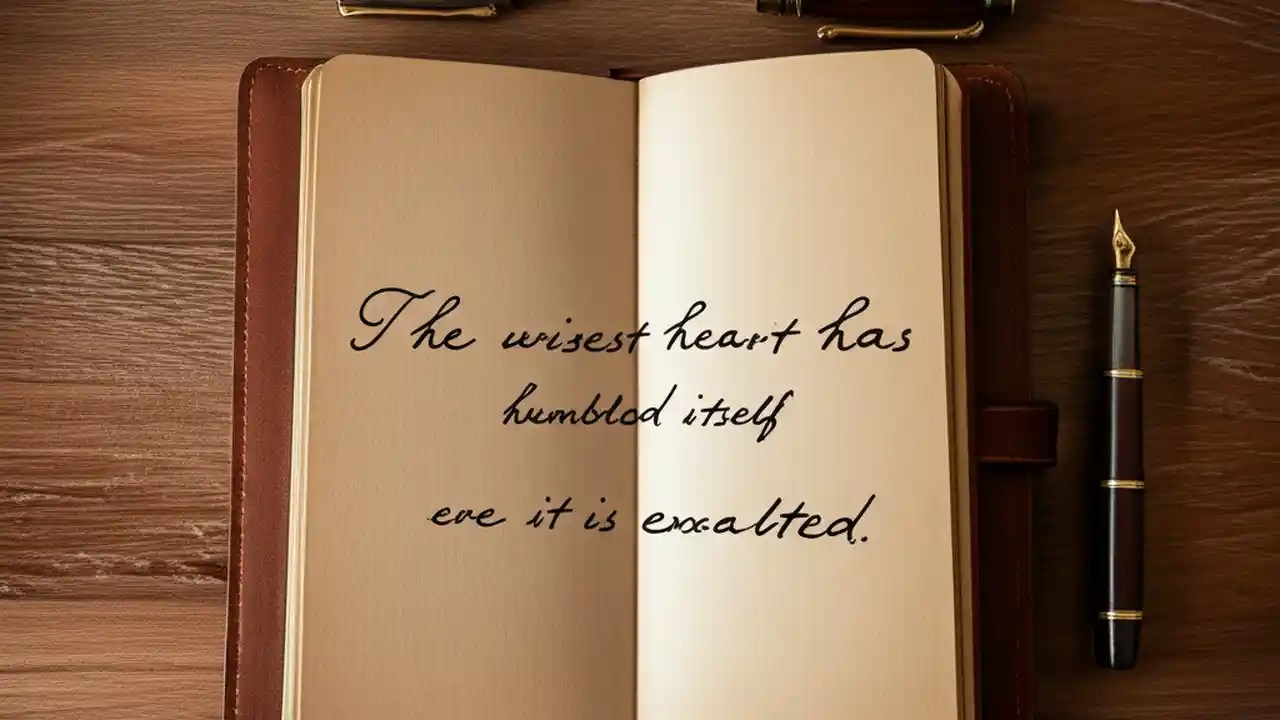 The wisest heart has
humbled itself
ere it is exalted.